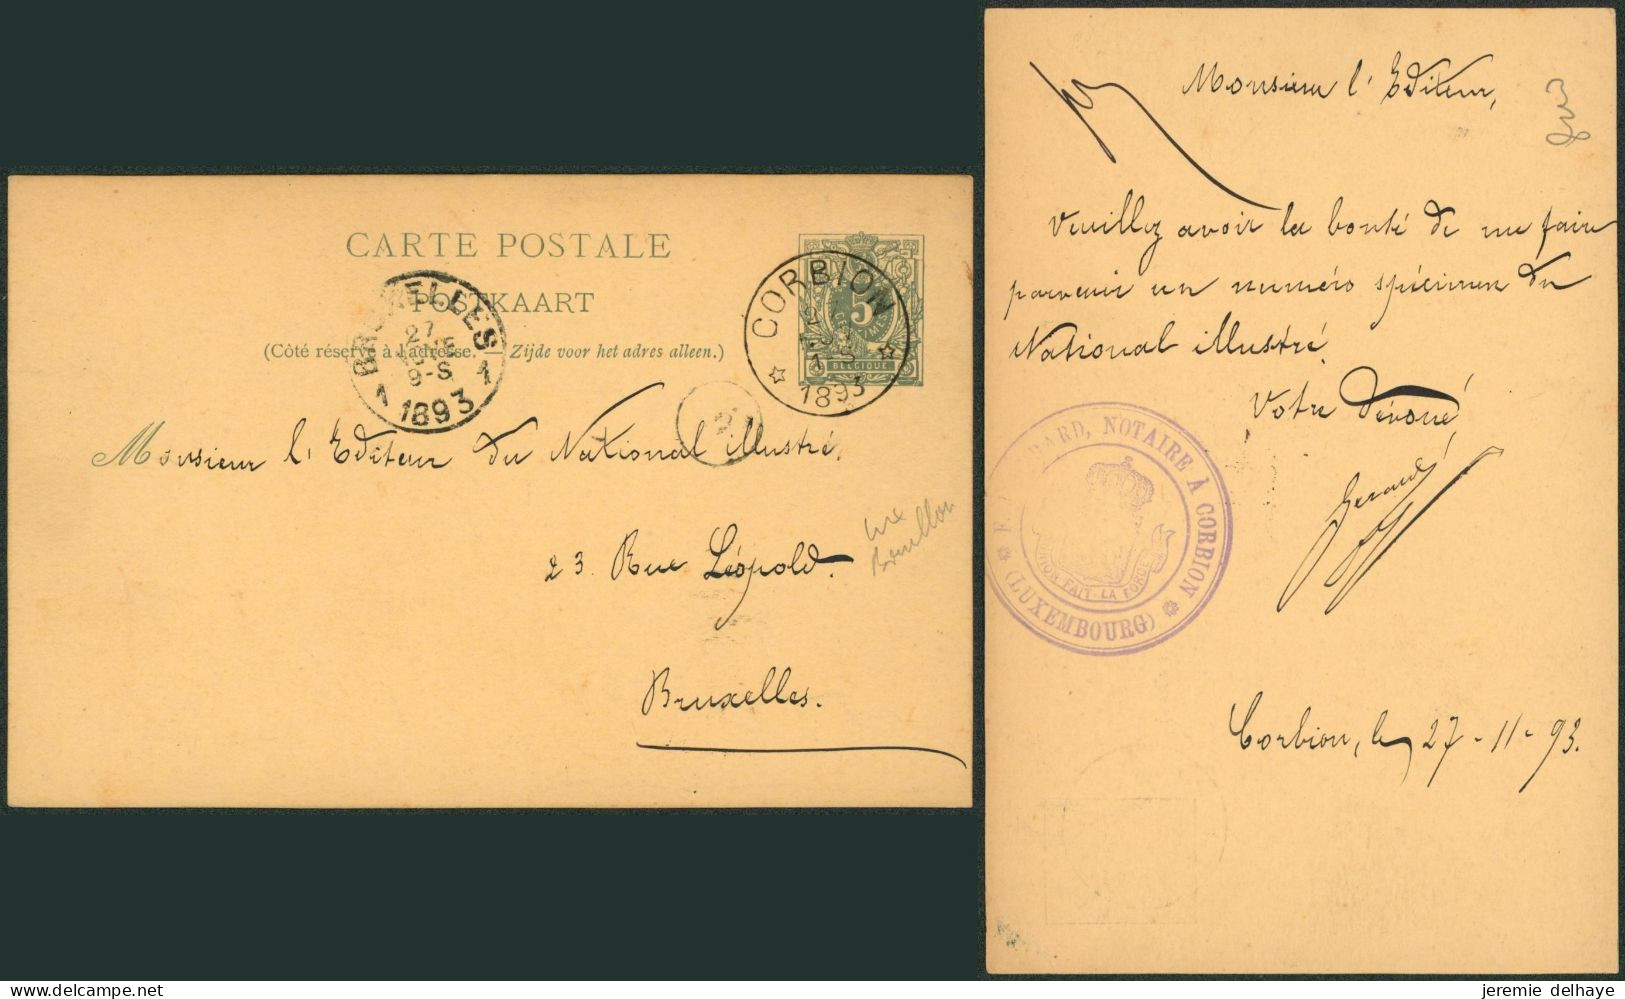 CARTE POSTALE
POSTKAART
(Côté réservé à l'adresse. — Zijde voor het adres alleen.)
BRUXELLES
27
8-S
1 1893 1
CORBION
1-S
1893
5
CENTIMES
BELGIQUE
Monsieur l'Editeur du National illustré.
23. Rue Léopold.
Bruxelles.
Monsieur l'Editeur,
Veuillez avoir la bonté de me faire
parvenir un numéro spécimen du
National illustré.
Votre dévoué
Gerard
NOTAIRE À CORBION
(LUXEMBOURG)
UNION FAIT LA FORCE
Corbion, le 27-11-93.
jeremie delhaye